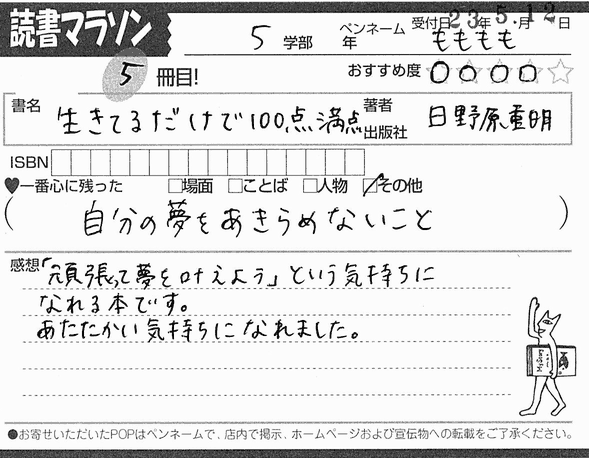 読書マラソン
受付日 23年 5.月12日
5 学部 年 ペンネーム もももも
5 冊目!
おすすめ度 ○○○○☆
書名 生きてるだけで100点満点
著者 出版社 日野原重明
ISBN
♥一番心に残った □場面 □ことば □人物 ☑その他
(自分の夢をあきらめないこと)
感想「頑張って夢を叶えよう」という気持ちに
なれる本です。
あたたかい気持ちになれました。
●お寄せいただいたPOPはペンネームで、店内で掲示、ホームページおよび宣伝物への転載をご了承ください。